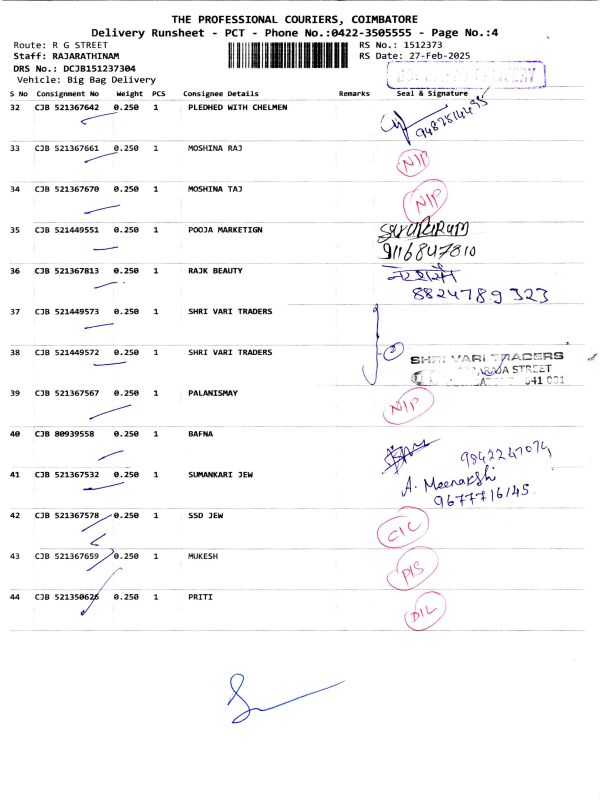 THE PROFESSIONAL COURIERS, COIMBATORE
Delivery Runsheet - PCT - Phone No.:0422-3505555 - Page No.:4
Route: R G STREET RS No.: 1512373
Staff: RAJARATHINAM RS Date: 27-Feb-2025
DRS No.: DCJB151237304
Vehicle: Big Bag Delivery
S No Consignment No Weight PCS Consignee Details Remarks Seal & Signature
32 CJB 521367642 0.250 1 PLEDHED WITH CHELMEN
33 CJB 521367661 0.250 1 MOSHINA RAJ N/P
34 CJB 521367670 0.250 1 MOSHINA TAJ N/P
35 CJB 521449551 0.250 1 POOJA MARKETIGN
9116847810
36 CJB 521367813 0.250 1 RAJK BEAUTY
8824789323
37 CJB 521449573 0.250 1 SHRI VARI TRADERS
38 CJB 521449572 0.250 1 SHRI VARI TRADERS SHRI VARI TRADERS
STREET
641 001
39 CJB 521367567 0.250 1 PALANISMAY N/P
40 CJB 80939558 0.250 1 BAFNA
41 CJB 521367532 0.250 1 SUMANKARI JEW A. Meenakshi
9677716145.
42 CJB 521367578 0.250 1 SSD JEW C/L
43 CJB 521367659 0.250 1 MUKESH P/S
44 CJB 521350626 0.250 1 PRITI D/L